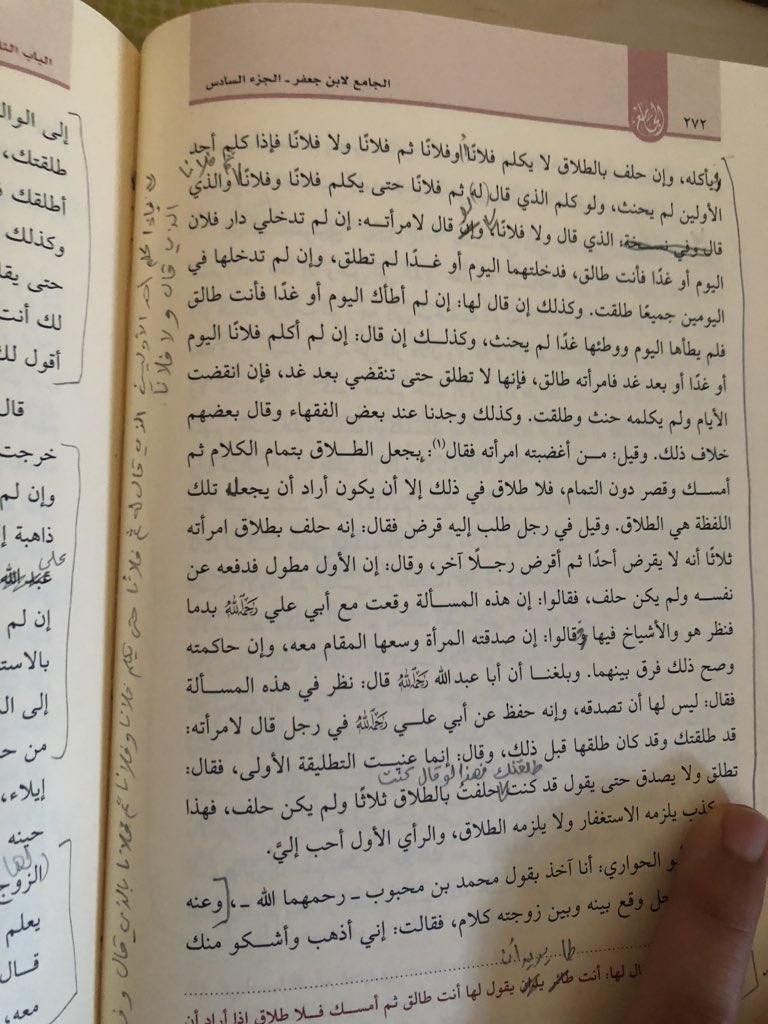 ٢٧٢
الجامع لابن جعفر ـ الجزء السادس
يأكله، وإن حلف بالطلاق لا يكلم فلانًا أو فلانًا ثم فلانًا ولا فلانًا فإذا كلم أحد
الأولين لم يحنث، ولو كلم الذي قال (له) ثم فلانًا حتى يكلم فلانًا وفلانًا والذي
قال وفي نسخة: الذي قال ولا فلانًا، قال لامرأته: إن لم تدخلي دار فلان
اليوم أو غدًا فأنت طالق، فدخلتهما اليوم أو غدًا لم تطلق، وإن لم تدخلها في
اليومين جميعًا طلقت. وكذلك إن قال لها: إن لم أطأك اليوم أو غدًا فأنت طالق
فلم يطأها اليوم ووطئها غدًا لم يحنث، وكذلك إن قال: إن لم أكلم فلانًا اليوم
أو غدًا أو بعد غد فامرأته طالق، فإنها لا تطلق حتى تنقضي بعد غد، فإن انقضت
الأيام ولم يكلمه حنث وطلقت. وكذلك وجدنا عند بعض الفقهاء وقال بعضهم
خلاف ذلك. وقيل: من أغضبته امرأته فقال(١): بجعل الطلاق بتمام الكلام ثم
أمسك وقصر دون التمام، فلا طلاق في ذلك إلا أن يكون أراد أن يجعله تلك
اللفظة هي الطلاق. وقيل في رجل طلب إليه قرض فقال: إنه حلف بطلاق امرأته
ثلاثًا أنه لا يقرض أحدًا ثم أقرض رجلًا آخر، وقال: إن الأول مطول فدفعه عن
نفسه ولم يكن حلف، فقالوا: إن هذه المسألة وقعت مع أبي علي رَحِمَهُ اللهُ بدما
فنظر هو والأشياخ فيها وقالوا: إن صدقته المرأة وسعها المقام معه، وإن حاكمته
وصح ذلك فرق بينهما. وبلغنا أن أبا عبدالله رَحِمَهُ اللهُ قال: نظر في هذه المسألة
فقال: ليس لها أن تصدقه، وإنه حفظ عن أبي علي رَحِمَهُ اللهُ في رجل قال لامرأته:
قد طلقتك وقد كان طلقها قبل ذلك، وقال: إنما عنيت التطليقة الأولى، فقال:
طلقتك فهذا لو قال كنت
تطلق ولا يصدق حتى يقول قد كنت حلفت بالطلاق ثلاثًا ولم يكن حلف، فهذا
كذب يلزمه الاستغفار ولا يلزمه الطلاق، والرأي الأول أحب إليَّ.
الحواري: أنا آخذ بقول محمد بن محبوب ـ رحمهما الله ـ، وعنه
وقع بينه وبين زوجته كلام، فقالت: إني أذهب وأشكو منك
لها: أنت يقول لها أنت طالق ثم أمسك فلا طلاق إذا أراد أن
إلى الوال
طلقتك،
أطلقك
وكذلك
حتى يقا
لك أنت
أقول لك
قال
خرجت
وإن لم
ذاهبة إ
علي
عبد الله
إن لم
بالاست
إلى ال
من حـ
إيلاء،
حينه
الزوج
يعلم
قال
معه،